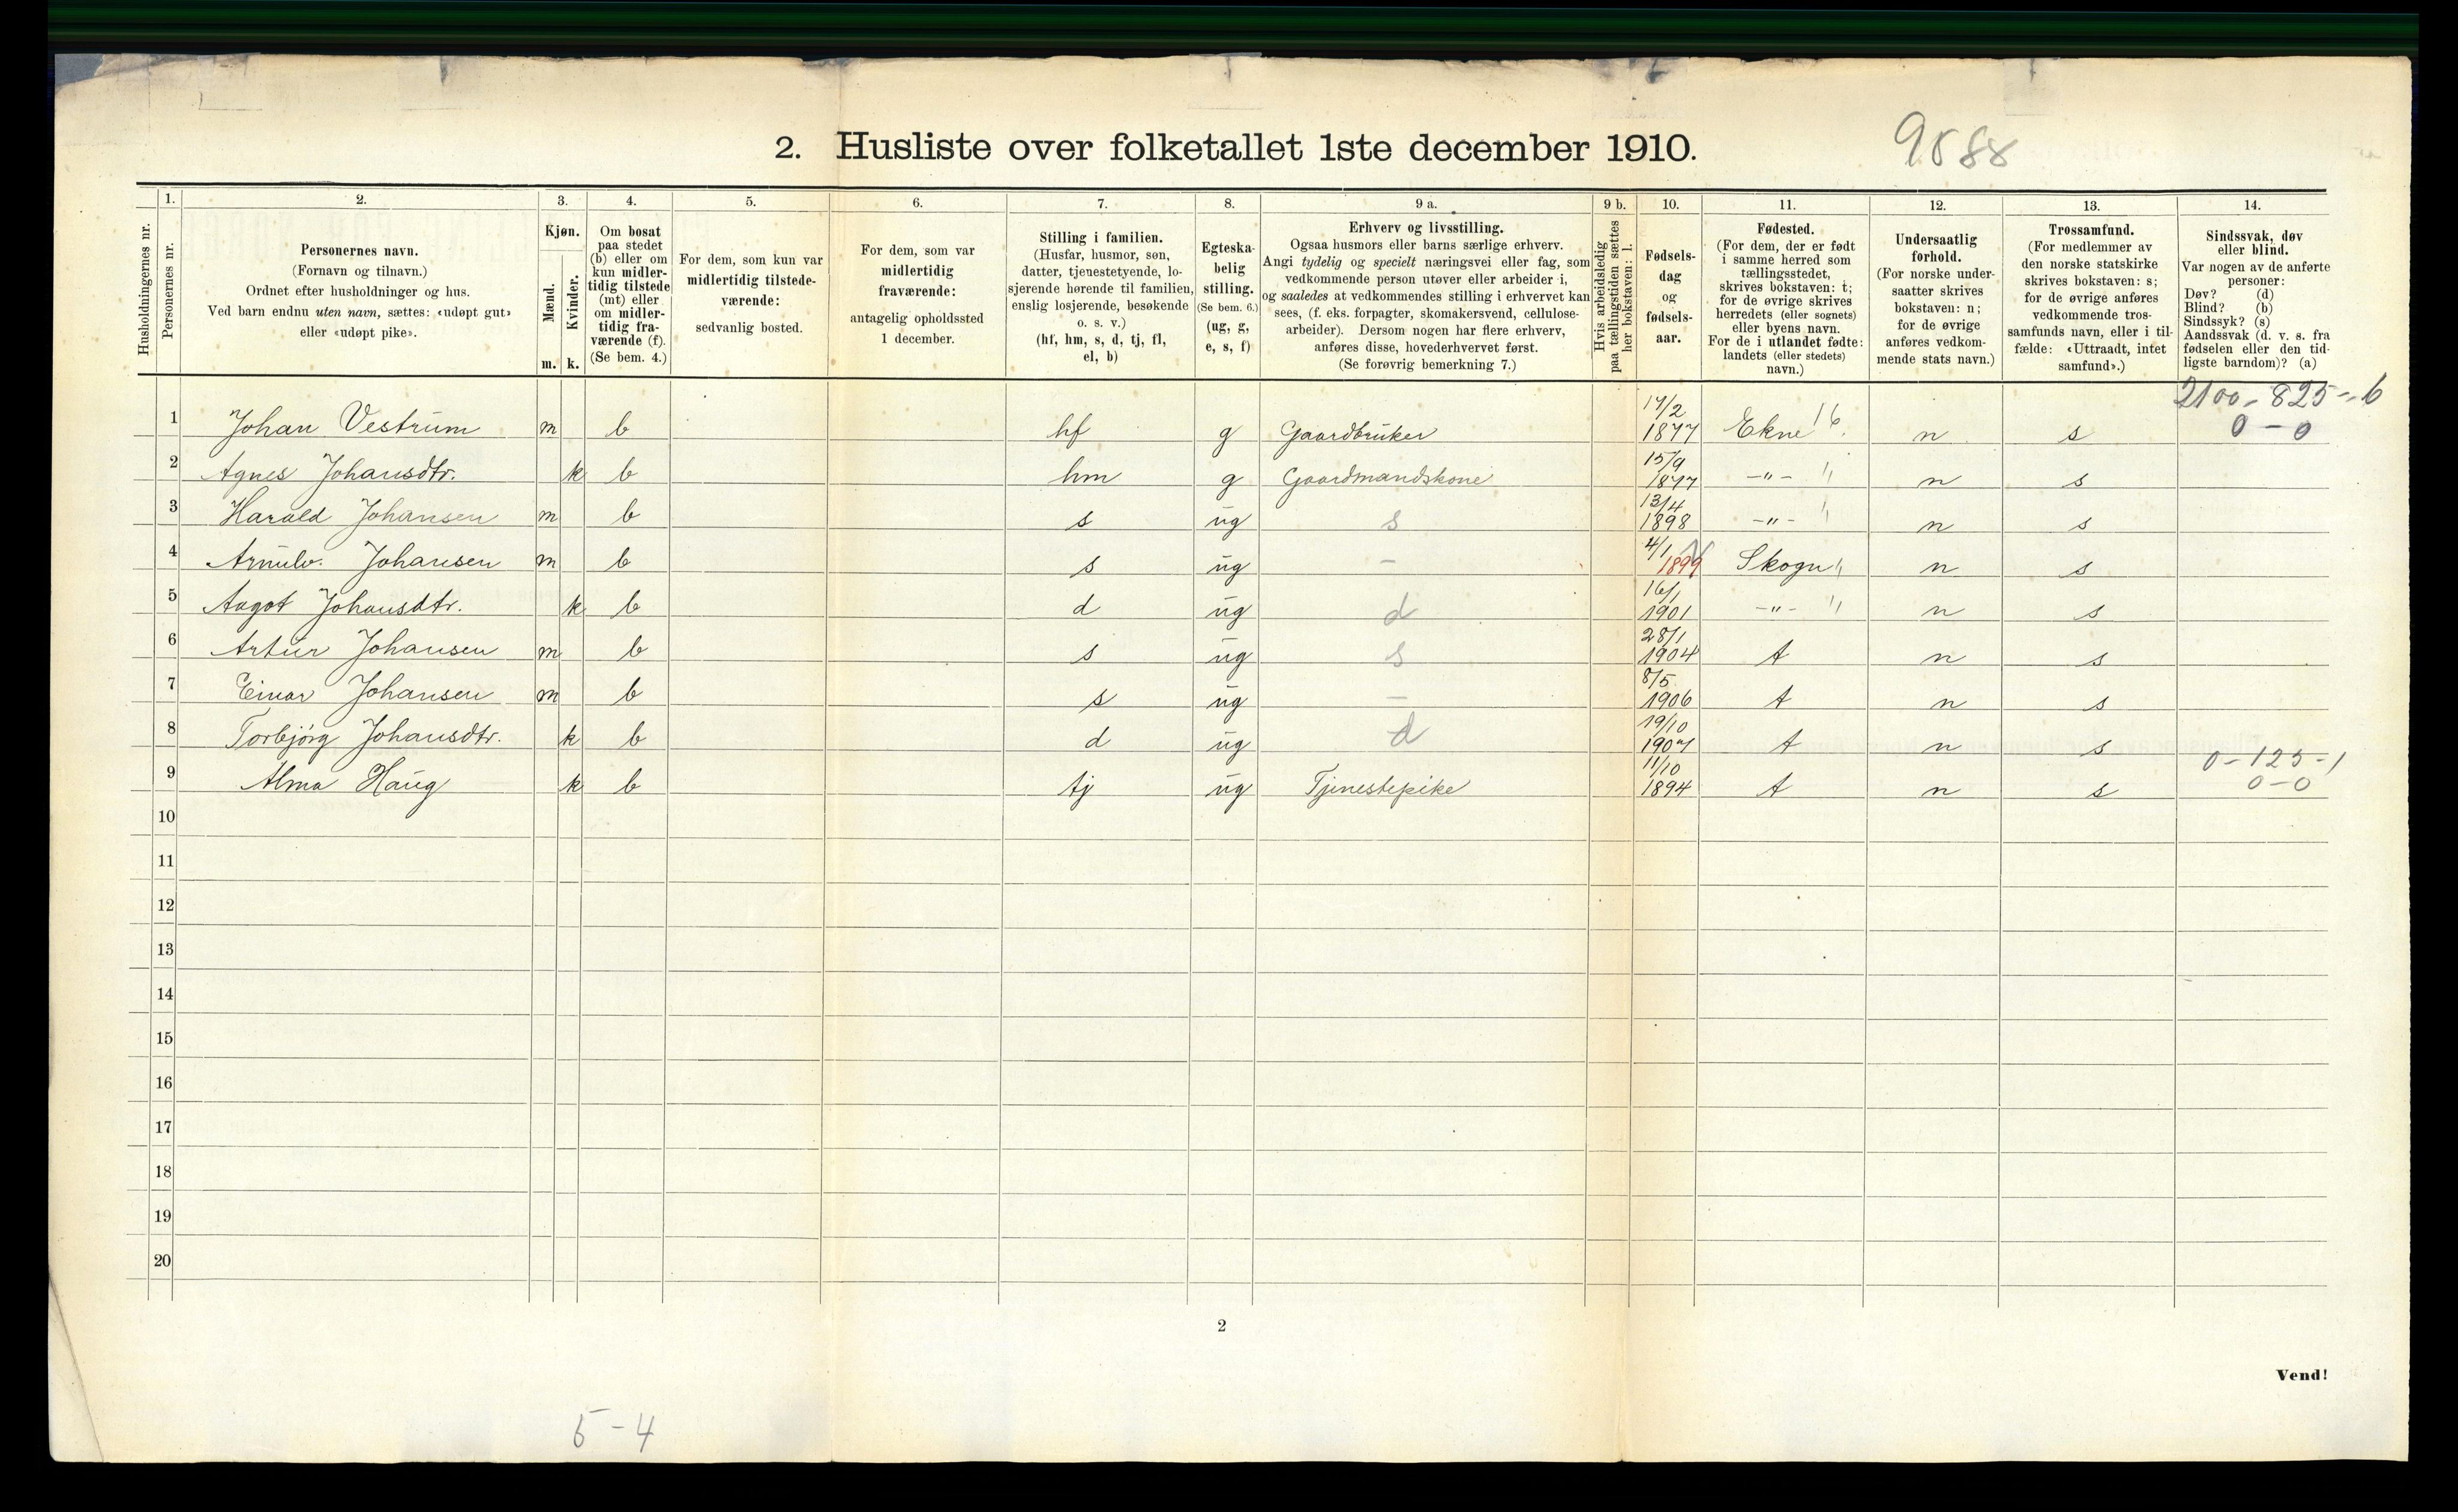 2. Husliste over folketallet 1ste december 1910.
9588
Husholdningernes nr.
1.
Personernes nr.
2.
Personernes navn.
(Fornavn og tilnavn.)
Ordnet efter husholdninger og hus.
Ved barn endnu uten navn, sættes: «udøpt gut»
eller «udøpt pike».
3.
Kjøn.
Mænd.
Kvinder.
m. k.
4.
Om bosat
paa stedet
(b) eller om
kun midler-
tidig tilstede
(mt) eller
om midler-
tidig fra-
værende (f).
(Se bem. 4.)
5.
For dem, som kun var
midlertidig tilstede-
værende:
sedvanlig bosted.
6.
For dem, som var
midlertidig
fraværende:
antagelig opholdssted
1 december.
7.
Stilling i familien.
(Husfar, husmor, søn,
datter, tjenestetyende, lo-
sjerende hørende til familien,
enslig losjerende, besøkende
o. s. v.)
(hf, hm, s, d, tj, fl,
el, b)
8.
Egteska-
belig
stilling.
(Se bem. 6.)
(ug, g,
e, s, f)
9 a.
Erhverv og livsstilling.
Ogsaa husmors eller barns særlige erhverv.
Angi tydelig og specielt næringsvei eller fag, som
vedkommende person utøver eller arbeider i,
og saaledes at vedkommendes stilling i erhvervet kan
sees, (f. eks. forpagter, skomakersvend, cellulose-
arbeider). Dersom nogen har flere erhverv,
anføres disse, hovederhvervet først.
(Se forøvrig bemerkning 7.)
9 b.
Hvis arbeidsledig
paa tællingstiden sættes
her bokstaven: l.
10.
Fødsels-
dag
og
fødsels-
aar.
11.
Fødested.
(For dem, der er født
i samme herred som
tællingsstedet,
skrives bokstaven: t;
for de øvrige skrives
herredets (eller sognets)
eller byens navn.
For de i utlandet fødte:
landets (eller stedets)
navn.)
12.
Undersaatlig
forhold.
(For norske under-
saatter skrives
bokstaven: n;
for de øvrige
anføres vedkom-
mende stats navn.)
13.
Trossamfund.
(For medlemmer av
den norske statskirke
skrives bokstaven: s;
for de øvrige anføres
vedkommende tros-
samfunds navn, eller i til-
fælde: «Uttraadt, intet
samfund».)
14.
Sindssvak, døv
eller blind.
Var nogen av de anførte
personer:
Døv? (d)
Blind? (b)
Sindssyk? (s)
Aandssvak (d. v. s. fra
fødselen eller den tid-
ligste barndom)? (a)
1 Johan Vestrum m b hf g Gaardbruker 17/2 1877 Ekne 16. n s 2100 - 825 - 6 0 - 0
2 Agnes Johansdtr. k b hm g Gaardmandskone 15/9 1877 -"- " n s
3 Harald Johansen m b s ug s 13/4 1898 -"- " n s
4 Arnulv. Johansen m b s ug - 4/1 1899 Skogn " n s
5 Aagot Johansdtr. k b d ug d 16/1 1901 -"- " n s
6 Artur Johansen m b s ug s 28/1 1904 t n s
7 Einar Johansen m b s ug - 8/5 1906 t n s
8 Torbjørg Johansdtr. k b d ug d 19/10 1907 t n s
9 Alma Haug k b tj ug Tjenestepike 11/10 1894 t n s 0 - 125 - 1 0 - 0
10
11
12
13
14
15
16
17
18
19
20
2
Vend!
5 - 4